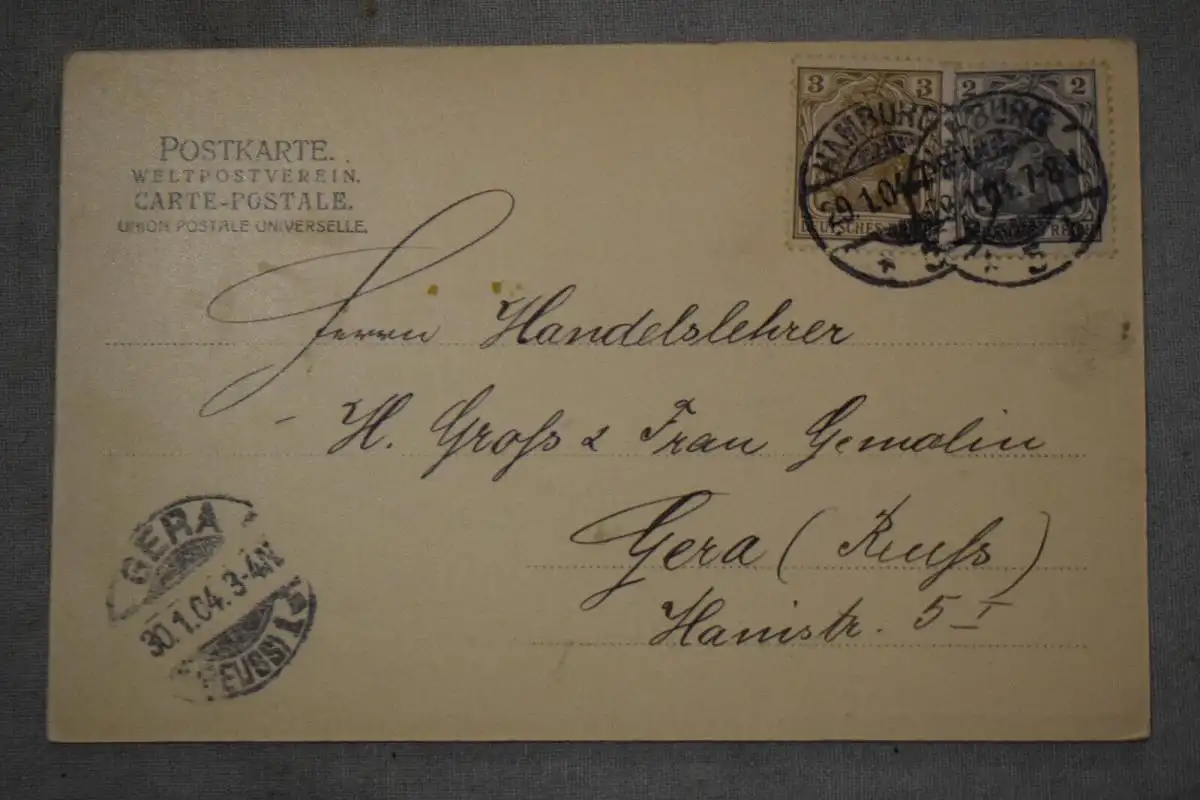 POSTKARTE.
WELTPOSTVEREIN.
CARTE-POSTALE.
UNION POSTALE UNIVERSELLE.
3 3
DEUTSCHES
2 2
HAMBURG
29.1.04.
BURG
1.04.7-8.V.
Herrn Handelslehrer
- H. Groß & Frau Gemalin
Gera (Reuß)
Hainstr. 5 I
GERA
30.1.04.3-4N
(REUSS) 1